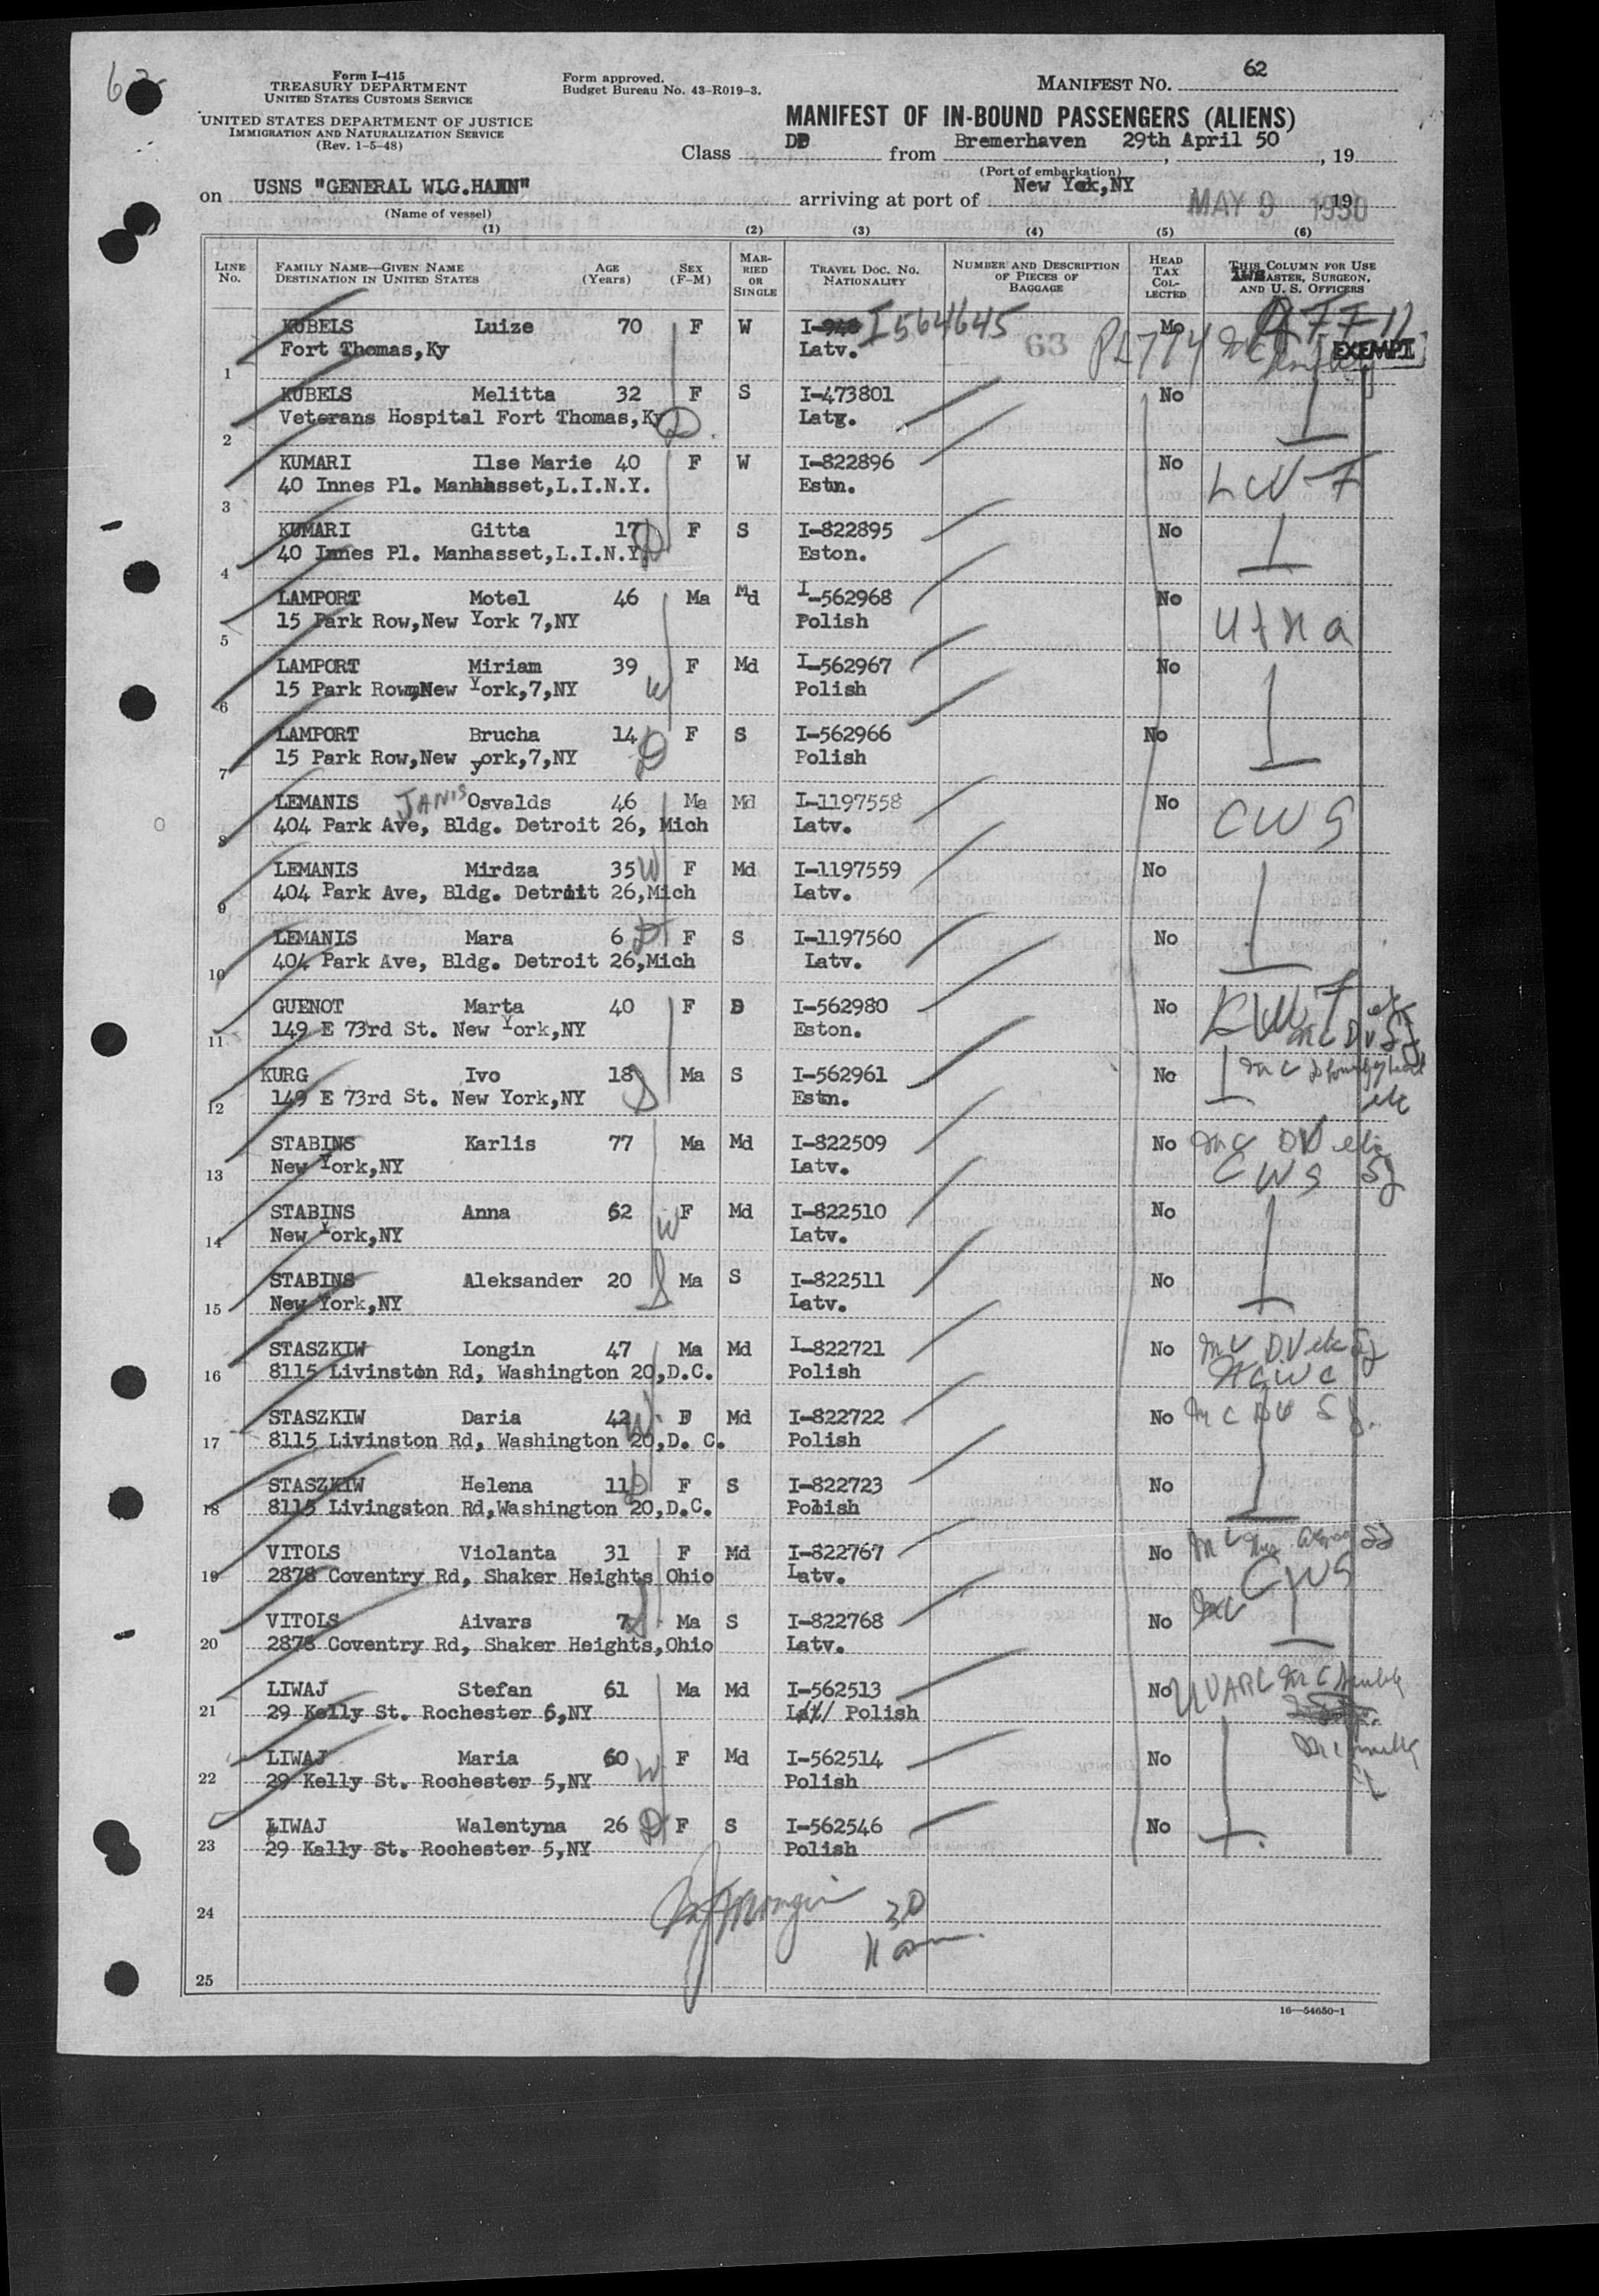 62
Form I-415
TREASURY DEPARTMENT
UNITED STATES CUSTOMS SERVICE
UNITED STATES DEPARTMENT OF JUSTICE
IMMIGRATION AND NATURALIZATION SERVICE
(Rev. 1-5-48)
Form approved.
Budget Bureau No. 43-R019-3.
MANIFEST NO. 62
MANIFEST OF IN-BOUND PASSENGERS (ALIENS)
Class DP from Bremerhaven 29th April 50, 19
(Port of embarkation)
on USNS "GENERAL W.G.HAAN" arriving at port of New York,NY MAY 9 1950, 19
(Name of vessel)
(1) (2) (3) (4) (5) (6)
LINE No. FAMILY NAME—GIVEN NAME DESTINATION IN UNITED STATES AGE (Years) SEX (F-M) MARRIED OR SINGLE TRAVEL DOC. NO. NATIONALITY NUMBER AND DESCRIPTION OF PIECES OF BAGGAGE HEAD TAX COLLECTED THIS COLUMN FOR USE MASTER, SURGEON, AND U. S. OFFICERS
1 KUBELS Luize 70 F W I- I564645 63 PL774 No EXEMPT
Fort Thomas,Ky Latv.
2 KUBELS Melitta 32 F S I-473801 No
Veterans Hospital Fort Thomas,Ky Latv.
3 KUMARI Ilse Marie 40 F W I-822896 No
40 Innes Pl. Manhasset,L.I.N.Y. Estn.
4 KUMARI Gitta 17 D F S I-822895 No
40 Innes Pl. Manhasset,L.I.N.Y. Eston.
5 LAMPORT Motel 46 Ma Md I-562968 No
15 Park Row,New York 7,NY Polish
6 LAMPORT Miriam 39 W F Md I-562967 No
15 Park Row,New York,7,NY Polish
7 LAMPORT Brucha 14 D F S I-562966 No
15 Park Row,New york,7,NY Polish
8 LEMANIS JANIS Osvalds 46 Ma Md I-1197558 No CWS
404 Park Ave, Bldg. Detroit 26, Mich Latv.
9 LEMANIS Mirdza 35 W F Md I-1197559 No
404 Park Ave, Bldg. Detroit 26,Mich Latv.
10 LEMANIS Mara 6 D F S I-1197560 No
404 Park Ave, Bldg. Detroit 26,Mich Latv.
11 GUENOT Marta 40 F D I-562980 No
149 E 73rd St. New York,NY Eston.
12 KURG Ivo 18 S Ma S I-562961 No
149 E 73rd St. New York,NY Estn.
13 STABINS Karlis 77 Ma Md I-822509 No
New York,NY Latv. CWS
14 STABINS Anna 62 W F Md I-822510 No
New York,NY Latv.
15 STABINS Aleksander 20 S Ma S I-822511 No
New York,NY Latv.
16 STASZKIW Longin 47 Ma Md I-822721 No
8115 Livinston Rd, Washington 20,D.C. Polish
17 STASZKIW Daria 42 W F Md I-822722 No
8115 Livinston Rd, Washington 20,D. C. Polish
18 STASZKIW Helena 11 D F S I-822723 No
8115 Livingston Rd,Washington 20,D.C. Polish
19 VITOLS Violanta 31 F Md I-822767 No
2878 Coventry Rd, Shaker Heights Ohio Latv. CWS
20 VITOLS Aivars 7 S Ma S I-822768 No
2878 Coventry Rd, Shaker Heights,Ohio Latv.
21 LIWAJ Stefan 61 Ma Md I-562513 No
29 Kelly St. Rochester 6,NY Polish
22 LIWAJ Maria 60 W F Md I-562514 No
29 Kelly St. Rochester 5,NY Polish
23 LIWAJ Walentyna 26 D F S I-562546 No
29 Kally St. Rochester 5,NY Polish
24
25
16—54650-1